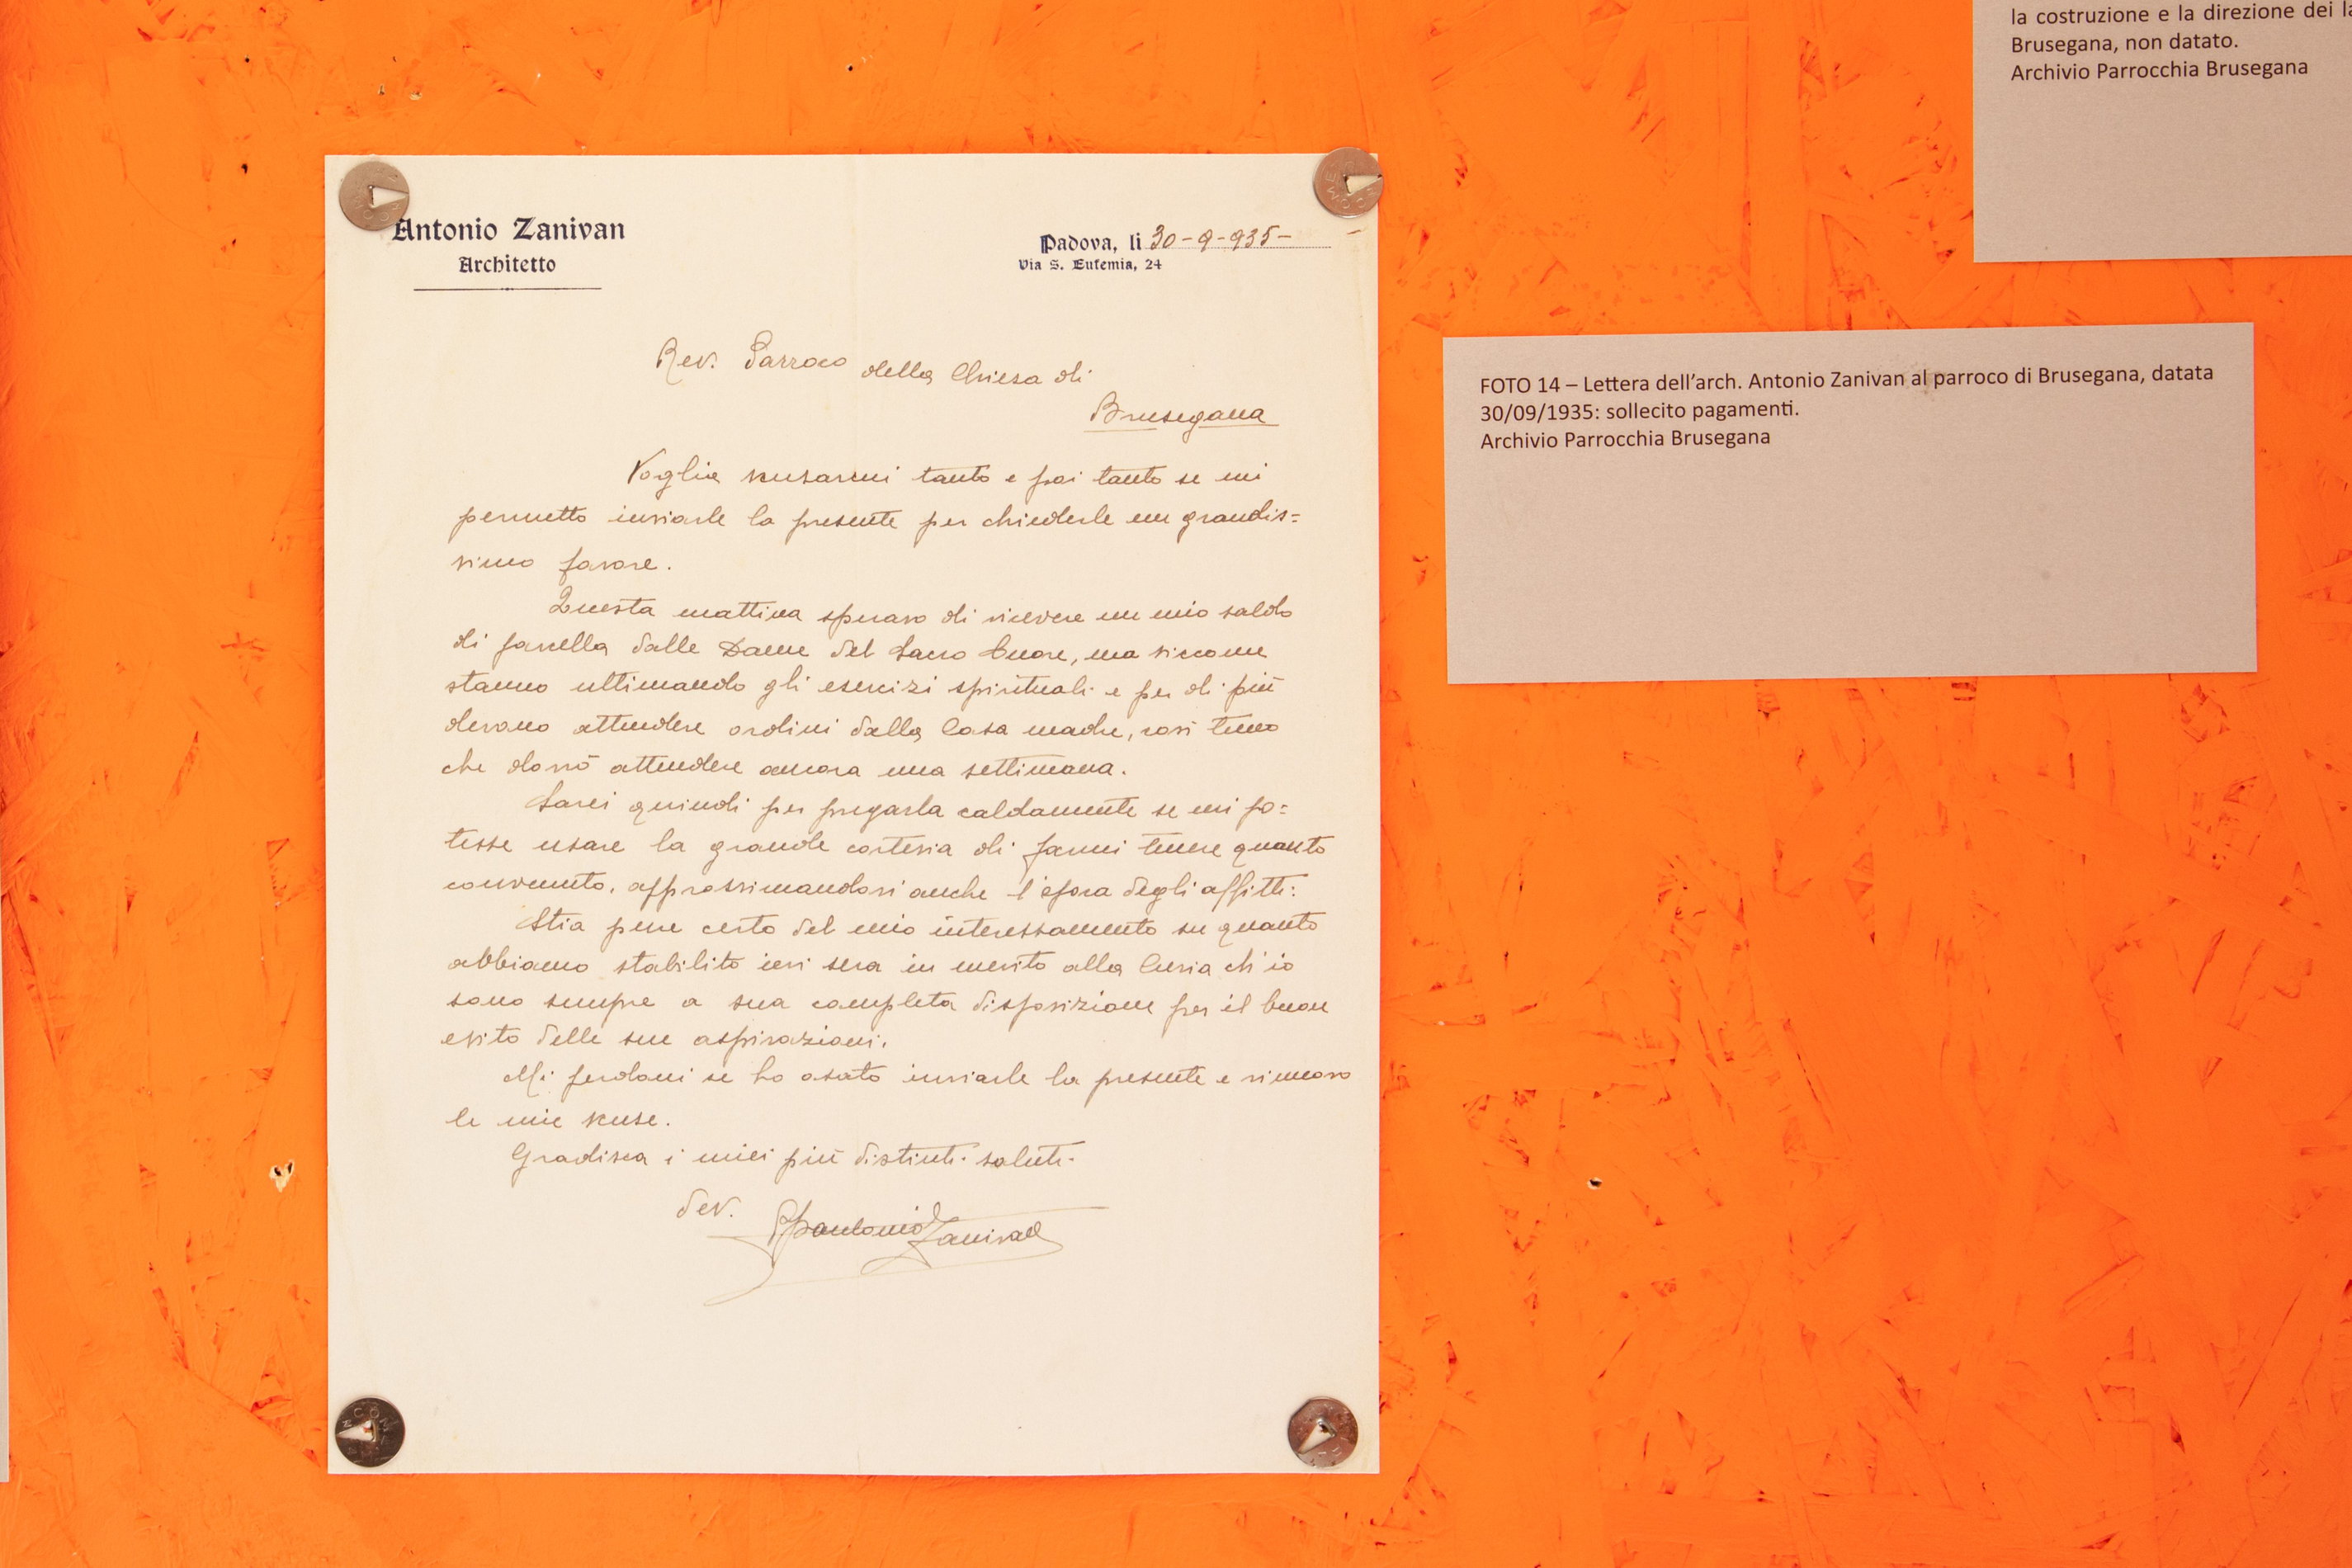 Antonio Zanivan
Architetto
Padova, li 30-9-935-
Via S. Eufemia, 24
Rev. Parroco della Chiesa di
Brusegana
Voglia scusarmi tanto e poi tanto se mi
permetto inviarle la presente per chiederle un grandis=
simo favore.
Questa mattina speravo di ricevere un mio saldo
di parcella dalle Dame del Sacro Cuore, ma siccome
stanno ultimando gli esercizi spirituali e per di più
devono attendere ordini dalla Casa madre, così temo
che dovrò attendere ancora una settimana.
Sarei quindi per pregarla caldamente se mi po=
tesse usare la grande cortesia di farmi tenere quanto
convenuto, approssimandosi anche l'epoca degli affitti.
Stia pure certo del mio interessamento su quanto
abbiamo stabilito ieri sera in merito alla Curia ch'io
sono sempre a sua completa disposizione per il buon
esito delle sue aspirazioni.
Mi perdoni se ho osato inviarle la presente e rinnovo
le mie scuse.
Gradisca i miei più distinti saluti.
dev.
Zanivan
la costruzione e la direzione dei
Brusegana, non datato.
Archivio Parrocchia Brusegana
FOTO 14 – Lettera dell'arch. Antonio Zanivan al parroco di Brusegana, datata
30/09/1935: sollecito pagamenti.
Archivio Parrocchia Brusegana